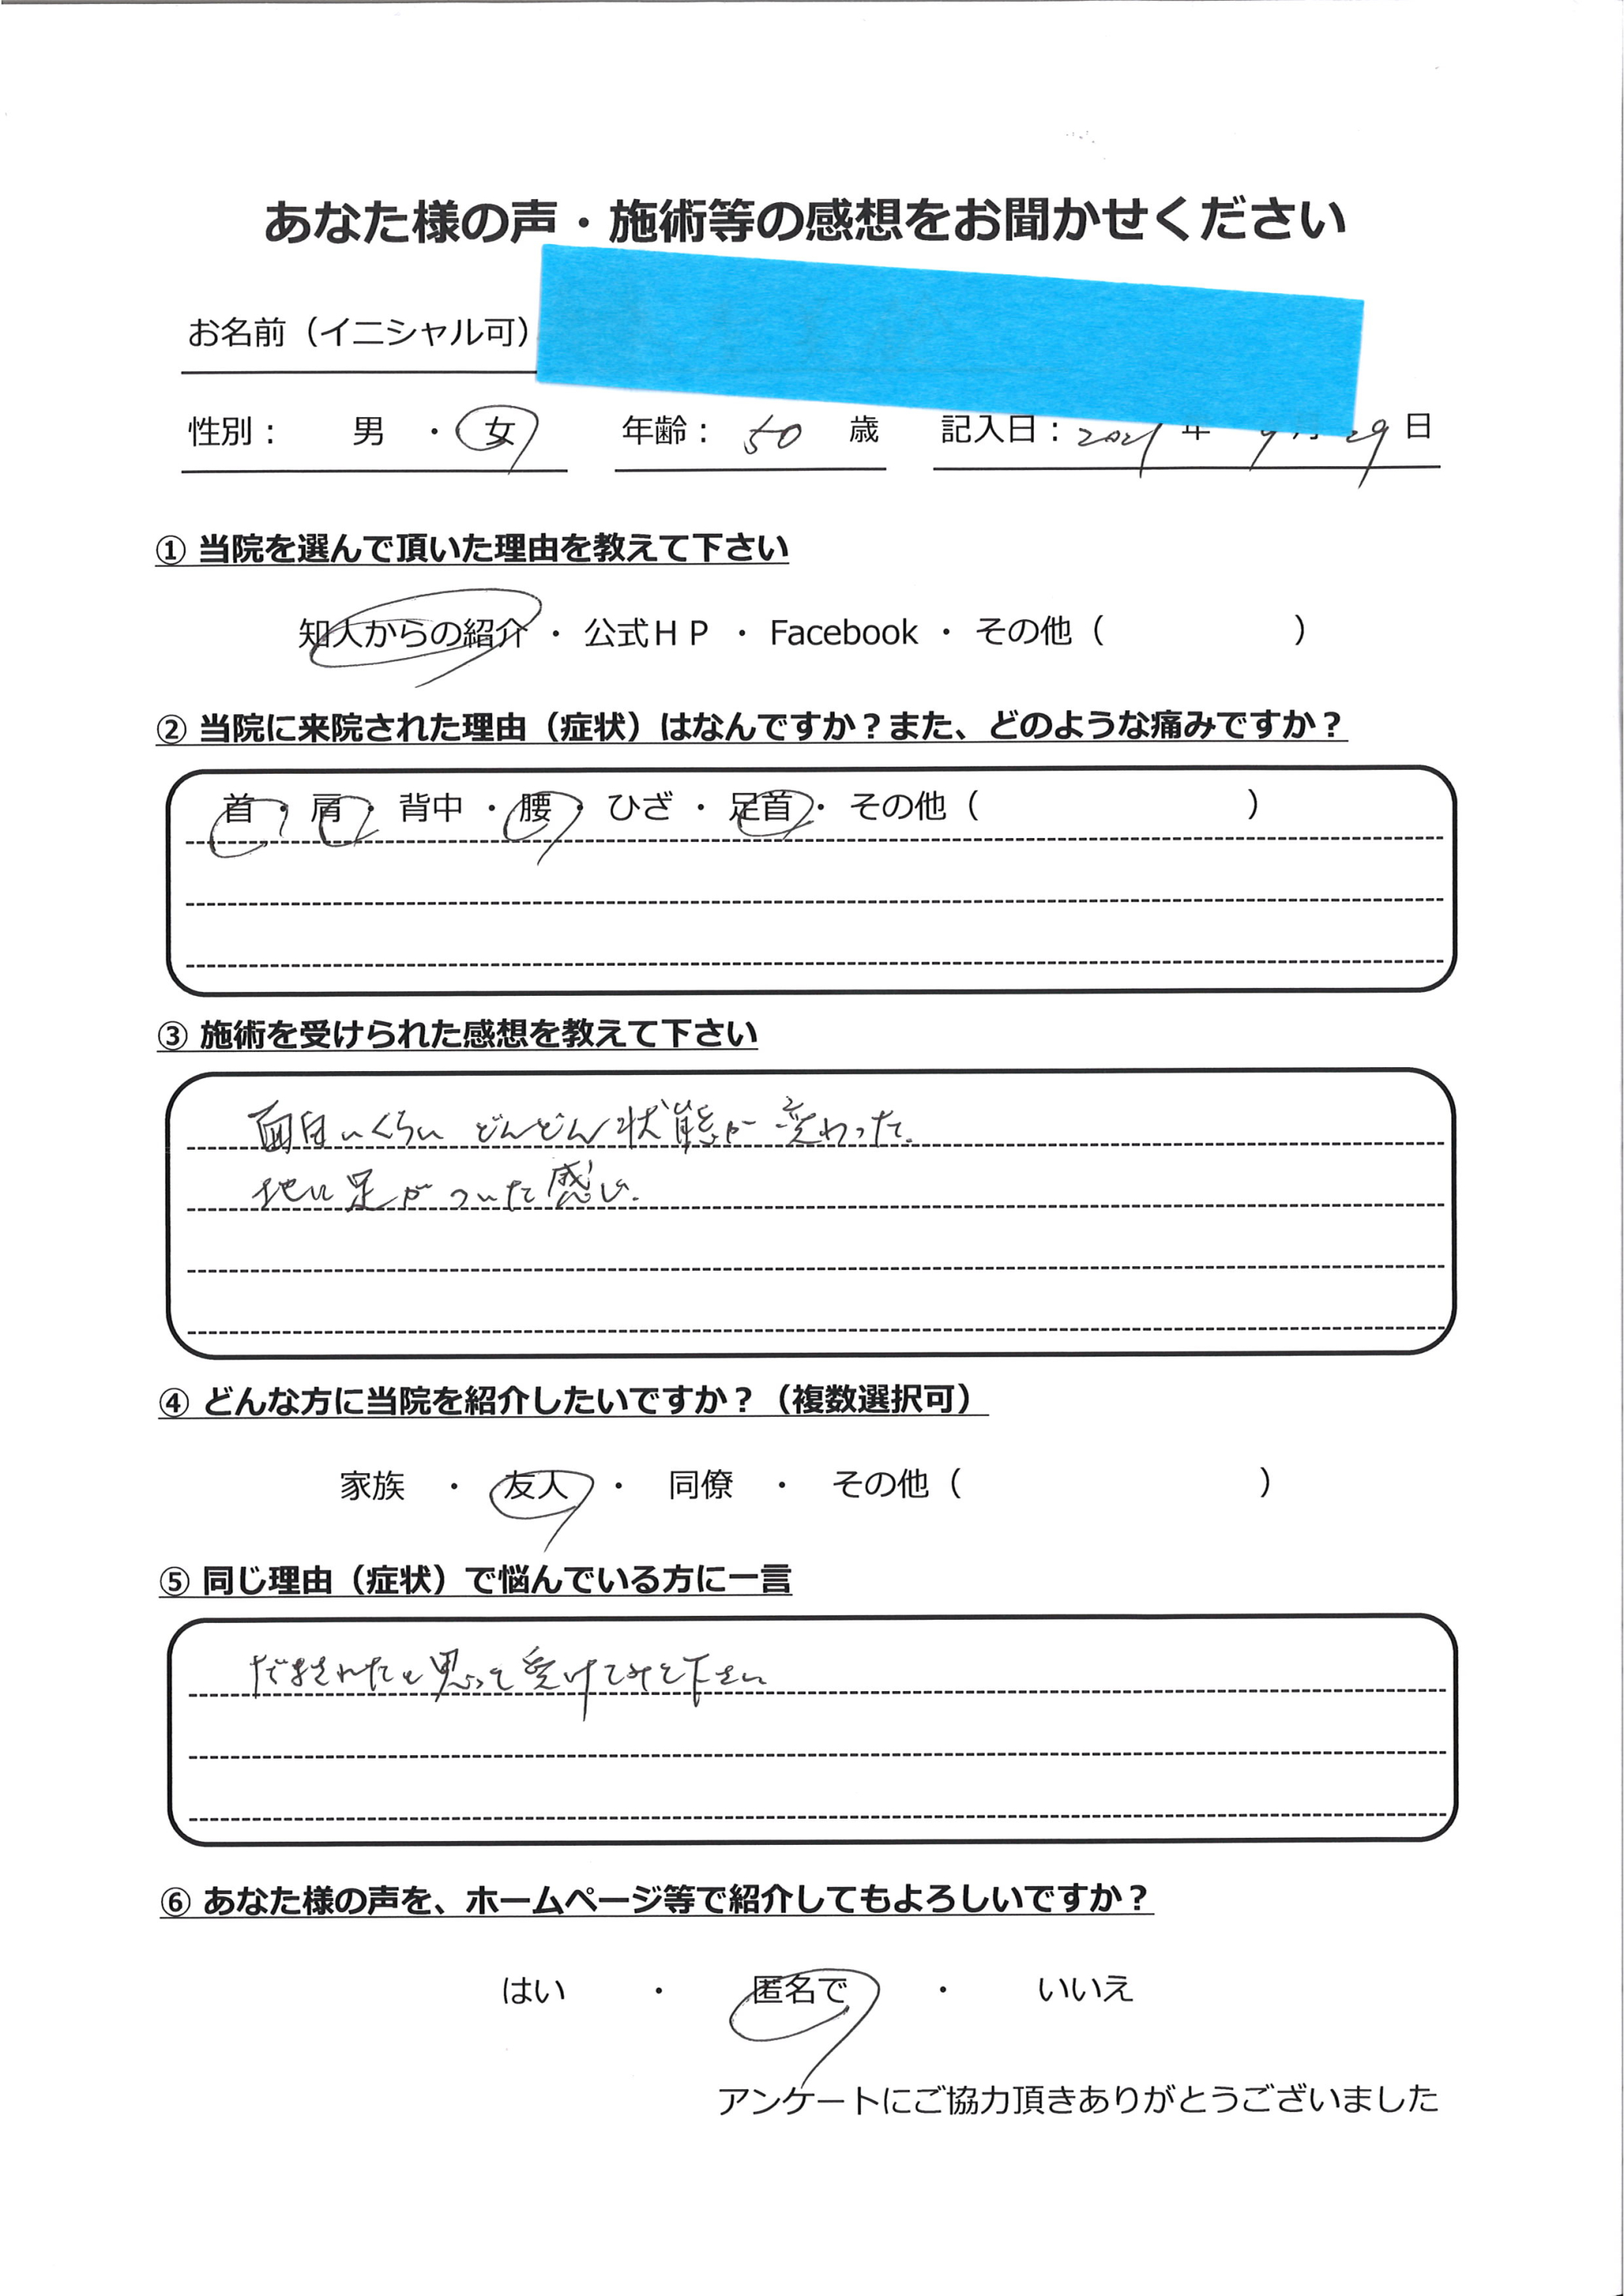 あなた様の声・施術等の感想をお聞かせください
お名前（イニシャル可）
性別： 男 ・ 女 年齢： 50 歳 記入日：2021 年 月 29 日
① 当院を選んで頂いた理由を教えて下さい
知人からの紹介 ・ 公式ＨＰ ・ Facebook ・ その他（ ）
② 当院に来院された理由（症状）はなんですか？また、どのような痛みですか？
首 ・ 肩 ・ 背中 ・ 腰 ・ ひざ ・ 足首 ・ その他（ ）
③ 施術を受けられた感想を教えて下さい
面白いくらい どんどん状態が変わった。
地に足がついた感じ.
④ どんな方に当院を紹介したいですか？（複数選択可）
家族 ・ 友人 ・ 同僚 ・ その他（ ）
⑤ 同じ理由（症状）で悩んでいる方に一言
だまされたと思って受けてみて下さい
⑥ あなた様の声を、ホームページ等で紹介してもよろしいですか？
はい ・ 匿名で ・ いいえ
アンケートにご協力頂きありがとうございました